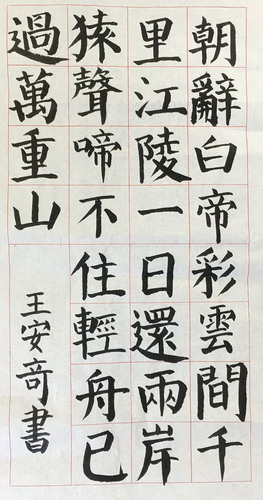 朝辭白帝彩雲間千
里江陵一日還兩岸
猿聲啼不住輕舟已
過萬重山
王安奇書